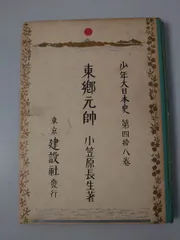 少年大日本史 第四拾八卷
東郷元帥 小笠原長生著
東京 建設社發行